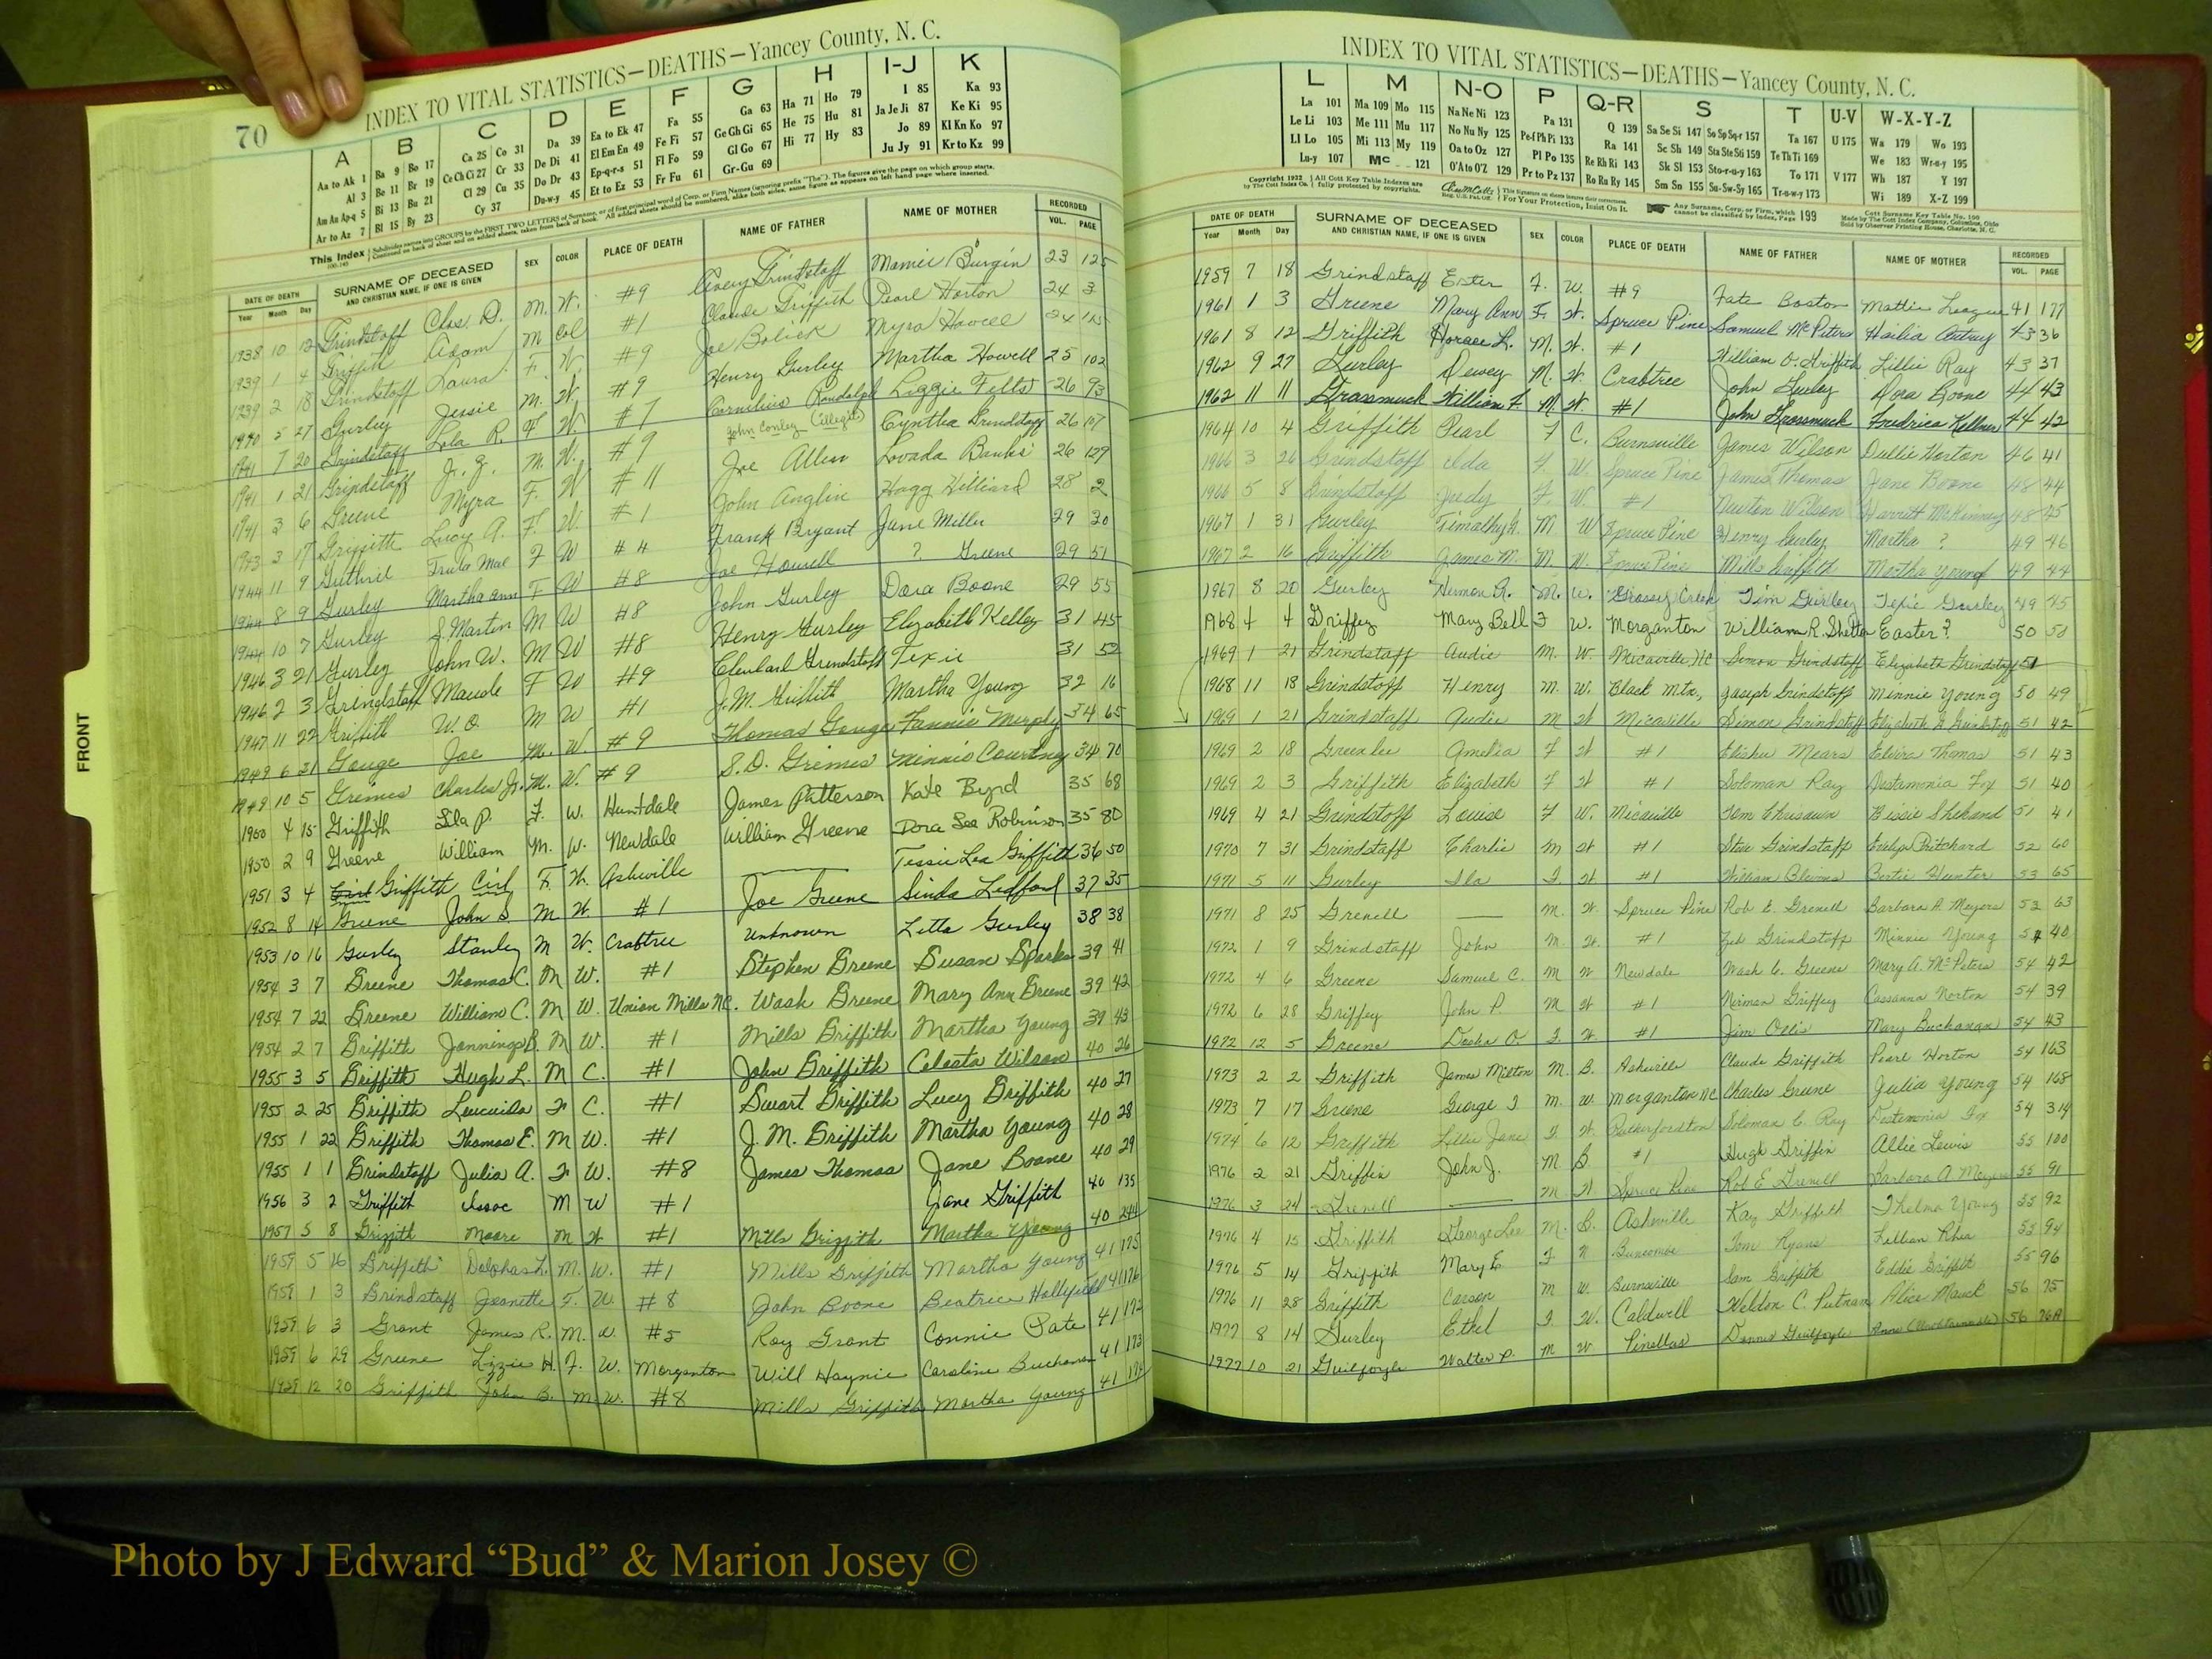 70
INDEX TO VITAL STATISTICS—DEATHS—Yancey County, N. C.
A B C D E F G H I-J K
Aa to Ak 1 Ba 9 Bo 17 Ca 25 Co 31 Da 39 Ea to Ek 47 Fa 55 Ga 63 Ha 71 Ho 79 I 85 Ka 93
Al 3 Be 11 Br 19 Ce Ch Ci 27 Cr 33 De Di 41 El Em En 49 Fe Fi 57 Ge Gh Gi 65 He 75 Hu 81 Ja Je Ji 87 Ke Ki 95
Am An Ap-q 5 Bi 13 Bu 21 Cl 29 Cu 35 Do Dr 43 Ep-q-r-s 51 Fl Fo 59 Gl Go 67 Hi 77 Hy 83 Jo 89 Kl Kn Ko 97
Ar to Az 7 Bl 15 By 23 Cy 37 Du-w-y 45 Et to Ez 53 Fr Fu 61 Gr-Gu 69 Ju Jy 91 Kr to Kz 99
This Index
DATE OF DEATH SURNAME OF DECEASED SEX COLOR PLACE OF DEATH NAME OF FATHER NAME OF MOTHER RECORDED
Year Month Day AND CHRISTIAN NAME, IF ONE IS GIVEN VOL. PAGE
1938 10 12 Grindstaff Chas. D. M. W. #9 Avery Grindstaff Mamie Burgin 23 125
1939 1 4 Griffith Adam M Col #1 Claude Griffith Pearl Horton 24 3
1939 2 18 Grindstaff Laura F. W. #9 Joe Bolick Myra Howell 24 115
1940 5 27 Gurley Jessie M. W. #9 Henry Gurley Martha Howell 25 102
1941 7 20 Grindstaff Lola R. F W. #7 Cornelius Randolph Lizzie Felts 26 93
1941 1 21 Grindstaff J. M. W. #9 John Conley (illegit) Cyntha Grindstaff 26 107
1941 3 6 Greene Myra F. W #11 Joe Allen Lovada Banks 26 129
1943 3 17 Griffith Lucy A. F. W. #1 John Anglin Hagg Hilliard 28 2
1944 11 9 Guthrie Trula Mae F W #4 Frank Bryant June Miller 29 30
1944 8 9 Gurley Martha Ann F W #8 Joe Howell ? Greene 29 51
1944 10 7 Gurley S. Martin M W #8 John Gurley Dora Boone 29 55
1946 3 21 Gurley John W. M W #8 Henry Gurley Elizabeth Kelley 31 45
1946 2 3 Grindstaff Maude F W #9 Cleveland Grindstaff Texie 31 52
1947 11 22 Griffith W. O. M W #1 J.M. Griffith Martha Young 32 16
1949 6 21 Gouge Joe M. W. #9 Thomas Gouge Fannie Murphy 34 65
1949 10 5 Grimes Charles Jr. M. W. #9 S.D. Grimes Minnie Courtney 34 70
1950 4 15 Griffith Lila P. F. W. Huntdale James Patterson Kate Byrd 35 68
1950 2 9 Greene William M. W. Newdale William Greene Dora Lee Robinson 35 80
1951 3 4 Griffith Girl F. W. Asheville Tessie Lea Griffith 36 50
1952 8 14 Greene John S M W #1 Joe Greene Linda Ledford 37 35
1953 10 16 Gurley Stanley M W. Crabtree Unknown Letta Gurley 38 38
1954 3 7 Greene Thomas C. M W. #1 Stephen Greene Susan Sparks 39 41
1954 7 22 Greene William C. M W. Union Mills NC. Wash Greene Mary Ann Greene 39 42
1954 2 7 Griffith Jennings B. M W. #1 Mills Griffith Martha Young 39 43
1955 3 5 Griffith Hugh L. M C. #1 John Griffith Celesta Wilson 40 26
1955 2 25 Griffith F C. #1 Swart Griffith Lucy Griffith 40 27
1955 1 22 Griffith Thomas E. M W. #1 J. M. Griffith Martha Young 40 28
1955 1 1 Grindstaff Julia A. F W. #8 James Thomas Jane Boone 40 29
1956 3 2 Griffith Isaac M W #1 Jane Griffith 40 135
1957 5 8 Griffith Moore M W #1 Mills Griffith Martha Young 40 244
1959 5 16 Griffith Dolphas L. M. W. #1 Mills Griffith Martha Young 41 175
1959 1 3 Grindstaff Jeanette F. W. #8 John Boone Beatrice Hollifield 41 176
1959 6 3 Grant James R. M. W. #5 Roy Grant Connie Pate 41 172
1959 6 29 Greene Lizzie H. F. W. Morganton Will Haynie Caroline Buchanan 41 173
1959 12 20 Griffith John B. M. W. #8 Mills Griffith Martha Young 41 174
FRONT
INDEX TO VITAL STATISTICS—DEATHS—Yancey County, N. C.
L M N-O P Q-R S T U-V W-X-Y-Z
La 101 Ma 109 Mo 115 Na Ne Ni 123 Pa 131 Q 139 Sa Se Si 147 So Sp Sq-r 157 Ta 167 U 175 Wa 179 Wo 193
Le Li 103 Me 111 Mu 117 No Nu Ny 125 Pe-f Ph Pi 133 Ra 141 Sc Sh 149 Sta Ste Sti 159 Te Th Ti 169 We 183 Wr-u-y 195
Ll Lo 105 Mi 113 My 119 Oa to Oz 127 Pl Po 135 Re Rh Ri 143 Sk Sl 153 Sto-r-u-y 163 To 171 V 177 Wh 187 Y 197
Lu-y 107 Mc 121 O'A to O'Z 129 Pr to Pz 137 Ro Ru Ry 145 Sm Sn 155 Su-Sw-Sy 165 Tr-u-w-y 173 Wi 189 X-Z 199
Copyright 1932 All Cott Key Table Indexes are fully protected by copyrights. For Your Protection, Insist On It. Any Surname, Corp. or Firm, which cannot be classified by Index, Page 199
Cott Surname Key Table No. 100
Made by The Cott Index Company, Columbus, Ohio
Sold by Observer Printing House, Charlotte, N. C.
DATE OF DEATH SURNAME OF DECEASED SEX COLOR PLACE OF DEATH NAME OF FATHER NAME OF MOTHER RECORDED
Year Month Day AND CHRISTIAN NAME, IF ONE IS GIVEN VOL. PAGE
1959 7 18 Grindstaff Ester F. W. #9 Fate Boston Mattie League 41 177
1961 1 3 Greene Mary Ann F. W. Spruce Pine Samuel McPeters Autrey 43 36
1961 8 12 Griffith Horace L. M. W. #1 William O. Griffith Lillie Ray 43 37
1962 9 27 Gurley Dewey M. W. Crabtree John Gurley Dora Boone 44 43
1962 11 11 Grassmuck William F. M. W. #1 John Grassmuck Fredrica Kellner 44 42
1964 10 4 Griffith Pearl F C. Burnsville James Wilson Dullie Horton 46 41
1966 3 26 Grindstaff Ida F. W. Spruce Pine James Thomas Jane Boone 48 44
1966 5 8 Grindstaff Judy F. W. #1 Newton Wilson Harrett McKinney 48 45
1967 1 31 Gurley Timathy G. M. W Spruce Pine Henry Gurley Martha ? 49 46
1967 2 16 Griffith James M. M. W. Spruce Pine Mills Griffith Martha Young 49 44
1967 8 20 Gurley Hermon R. M. W. Grassy Creek Tim Gurley Texie Gurley 49 45
1968 4 4 Griffey Mary Bell F W. Morganton William R. Shelton Easter ? 50 50
1969 1 21 Grindstaff Audie M. W. Micaville, NC Simon Grindstaff Elizabeth Grindstaff 51
1968 11 18 Grindstaff Henry M. W. Black Mtn., Joseph Grindstaff Minnie Young 50 49
1969 1 21 Grindstaff Audie M W Micaville Simon Grindstaff Elizabeth G. Grindstaff 51 42
1969 2 18 Greenlee Amelia F W #1 Elisha Mears Elvira Thomas 51 43
1969 2 3 Griffith Elizabeth F W #1 Soloman Ray Testamonia Fox 51 40
1969 4 21 Grindstaff Louise F W. Micaville Tom Chrisawn Bessie Shehand 51 41
1970 7 31 Grindstaff Charlie M W #1 Steve Grindstaff Evelyn Pritchard 52 60
1971 5 11 Gurley Ila F. W #1 William Blevins Bertie Hunter 53 65
1971 8 25 Grenell — M. W. Spruce Pine Rob E. Grenell Barbara A. Meyers 53 63
1972 1 9 Grindstaff John M. W. #1 Zeb Grindstaff Minnie Young 54 40
1972 4 6 Greene Samuel C. M W Newdale Wash C. Greene Mary A. McPeters 54 42
1972 6 28 Griffey John P. M W #1 Norman Griffey Cassanna Norton 54 39
1972 12 5 Greene Desha O F. W. #1 Jim Ollis Mary Buchanan 54 43
1973 2 2 Griffith James Milton M. B. Asheville Claude Griffith Pearl Horton 54 163
1973 7 17 Greene George F M. W. Morganton NC Charles Greene Julia Young 54 168
1974 6 12 Griffith Lillie Jane F. W. Rutherfordton Soloman C. Ray Testamonia Fox 54 314
1976 2 21 Griffin John J. M B #1 Hugh Griffin Allie Lewis 55 100
1976 3 24 Grenell — M W Spruce Pine Rob E Grenell Barbara A. Meyers 55 91
1976 4 15 Griffith George Lee M. B. Asheville Kay Griffith Thelma Young 55 92
1976 5 14 Griffith Mary E F W Buncombe Tom Ryans Lillian Rhea 55 94
1976 11 28 Griffith Carson M W. Burnsville Sam Griffith Eddie Griffith 55 96
1977 8 14 Gurley Ethel F. W. Caldwell Weldon C. Putnam Alice Mauck 56 75
1977 10 21 Guilfoyle Walter P. M W Pinellas Dennis Guilfoyle Anne (Unobtainable) 56 76A
Photo by J Edward “Bud” & Marion Josey ©